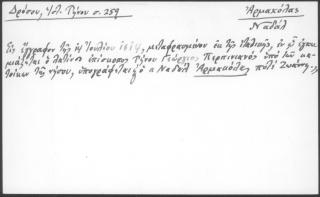 Δρόσου, Ἱστ. Τήνου σ. 259
Ἀρμακόλας
Ναδάλ
Εἰς ἔγγραφον τῆς Ἰουλίου 1614, μεταφρασμένον ἐκ τῆς ἰταλικῆς, ἐν ᾧ
ὁ λατῖνος ἐπίσκοπος Τήνου Γεώργιος Περπινιανός ὑπό τῶν κα-
τοίκων τῆς νήσου, ὑπογράφεται ὁ Ναδάλ Ἀρμακόλας ποτέ Ζωάννη